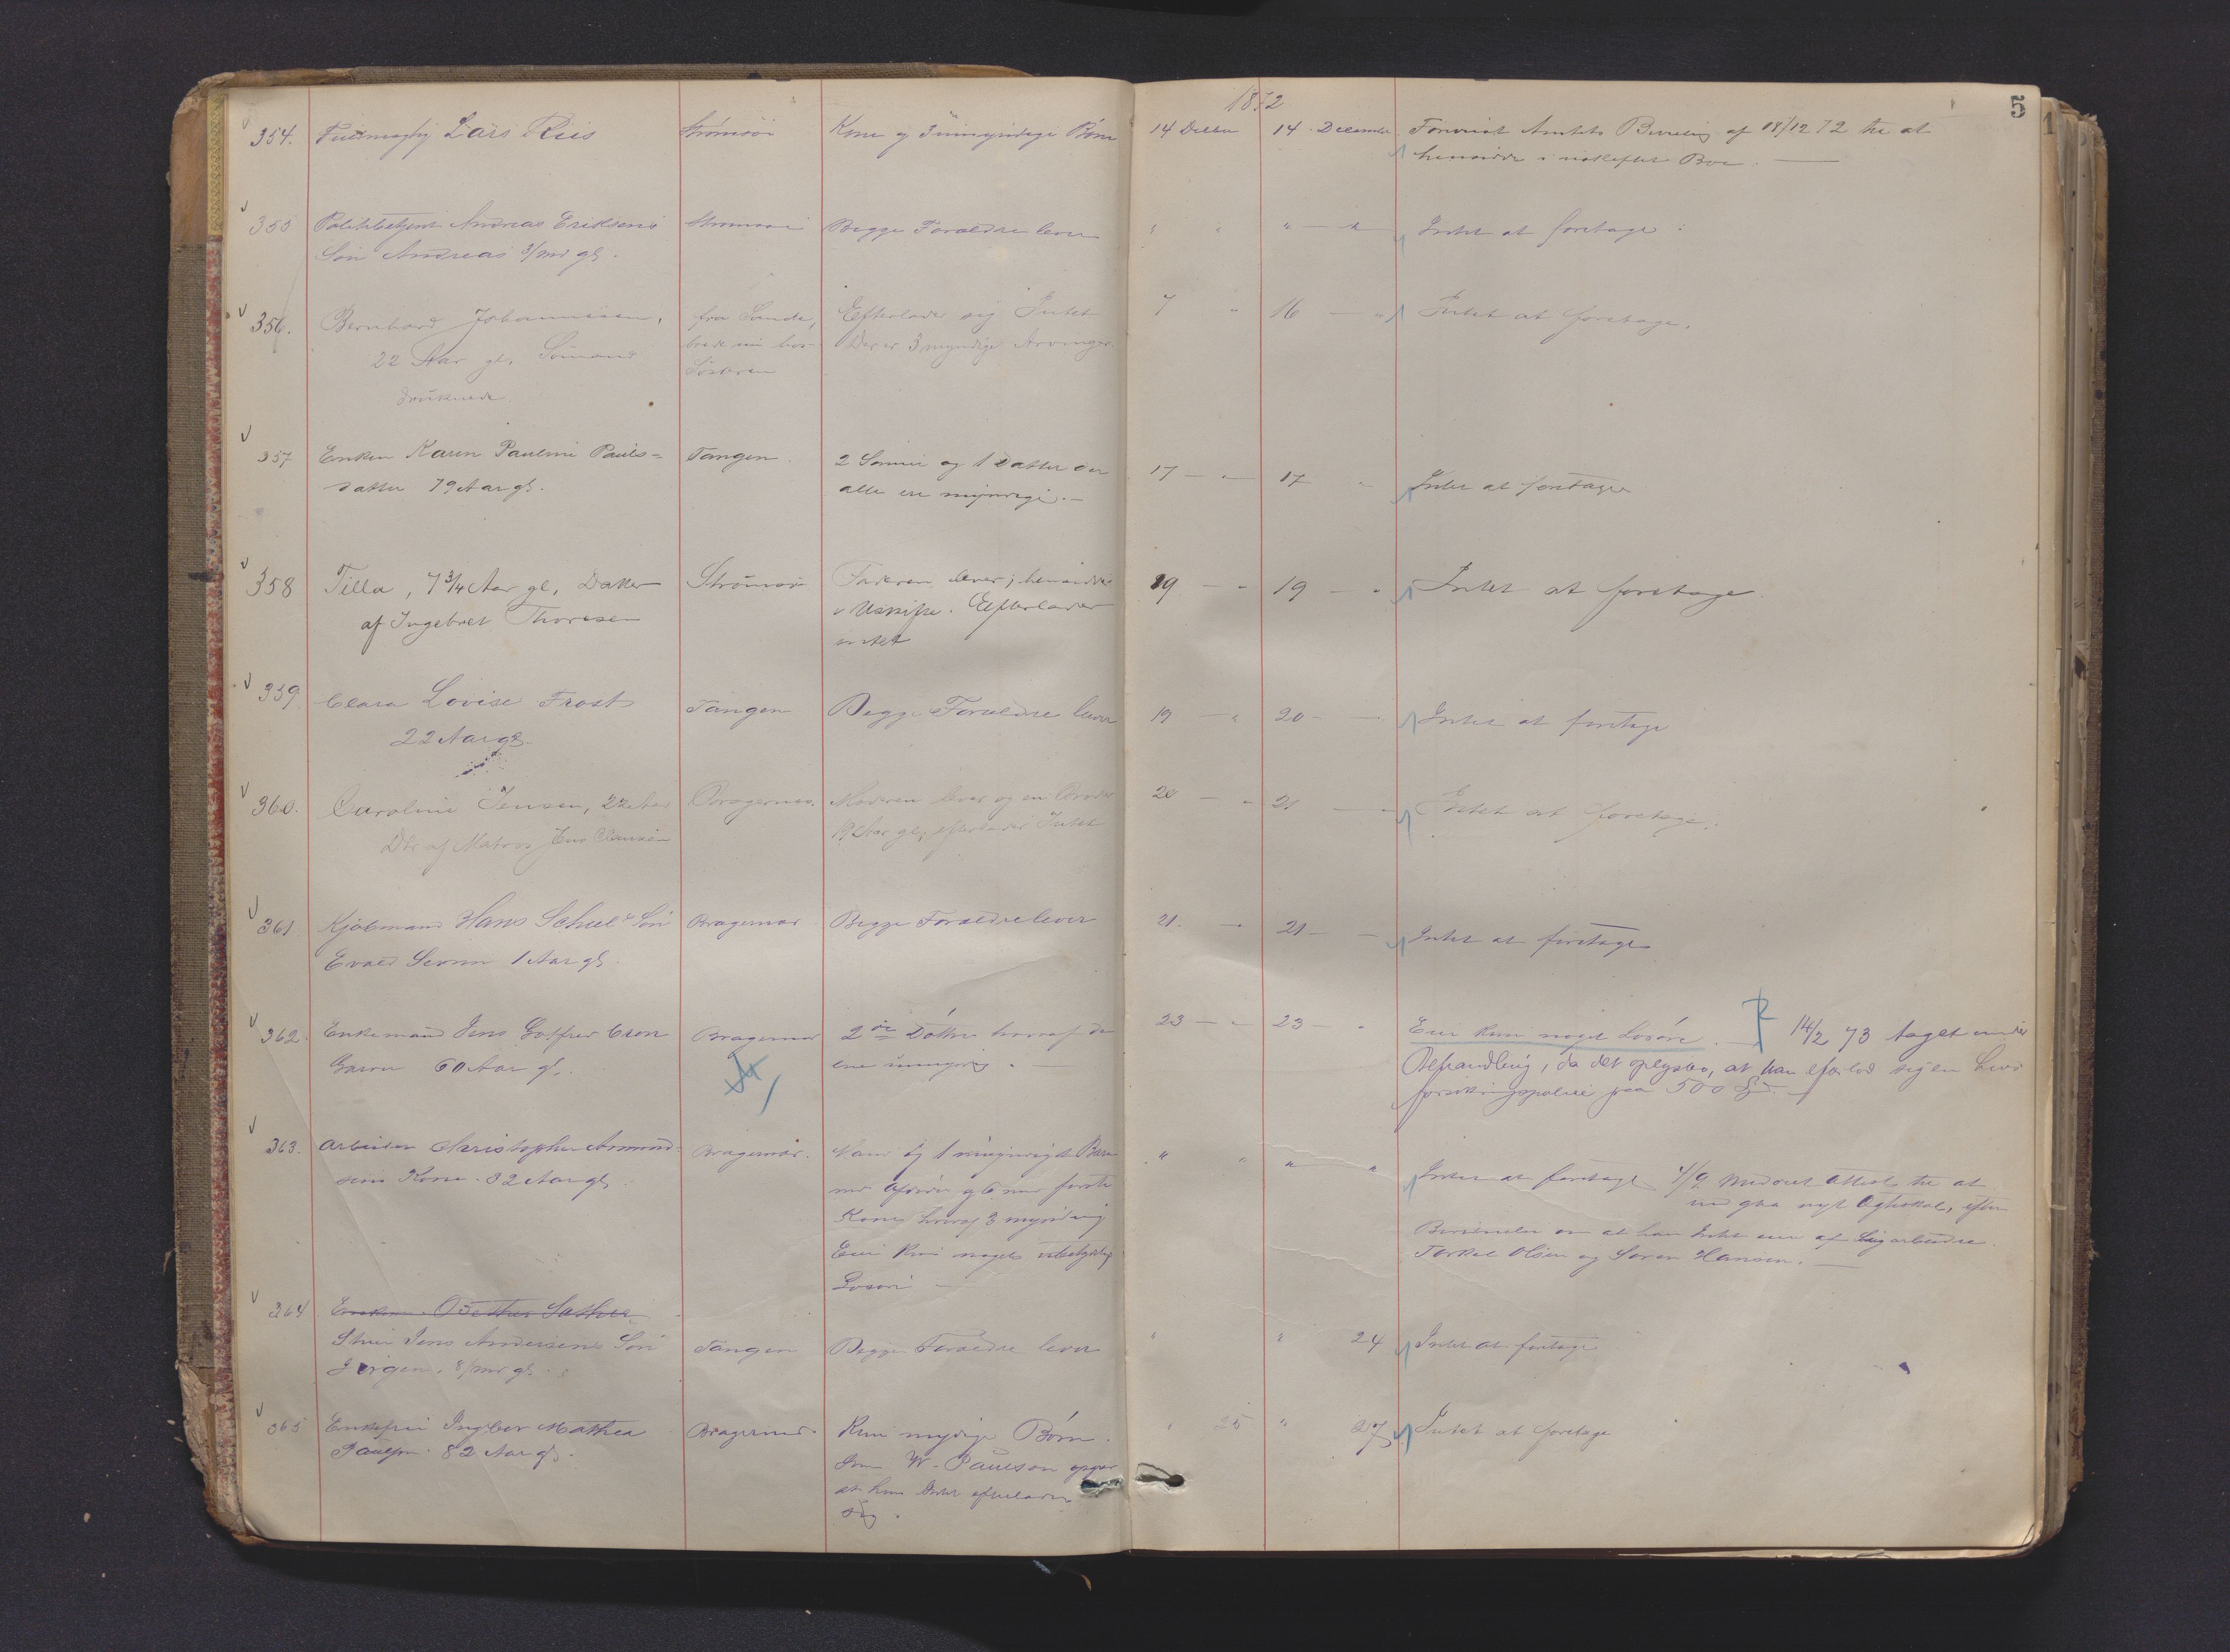 1872
5
354. Fuldmægtig Lars Riis Strømsø Kone og 3 umyndige Børn 14 Decbr 14 December Forevist Amtets Bevilling af 18/12 72 til at
hensidde i uskiftet Bo.
355 Politibetjent Andreas Eriksens Strømsø Begge Forældre lever " " " " Intet at foretage
Søn Andreas 3/mdr gl.
356. Bernhard Johannesen, fra Sande, Efterlader sig Intet 7 " 16 " Intet at foretage.
22 Aar gl. Sømand Der er 3 myndige Arvinger.
druknede.
357 Enken Karen Pauline Pauls- Tangen. 2 Sønner og 1 Datter der 17 " 17 " Intet at foretage
datter 79 Aar gl. alle ere myndige.
358 Tilla, 7 3/4 Aar gl. Datter Strømsø Faderen lever; hensidder 19 " 19 " Intet at foretage
af Ingebret Thoresen i Uskifte. Efterlader
intet
359. Clara Lovise Frost Tangen Begge Forældre lever 19 " 20 Intet at foretage
22 Aar gl.
360. Caroline Jensen, 22 Aar Bragernes. Moderen lever og en Broder 20 " 21 Intet at foretage.
Dtr af Matros Jens Clausen 19 Aar gl., efterlader Intet
361 Kjøbmand Hans Scheels Søn Bragernæs Begge Forældre lever 21. 21 Intet at foretage
1 Aar gl.
362. Enkemand Jens Gotfred Bragernæs 2de Døtre hvoraf den 23 " 23 " Eier kun noget Løsøre. 14/2 73 taget under
60 Aar gl. ene umyndig. Behandling, da det oplystes, at han efterlod sig en Livs
forsikringspolice paa 500 Spd.
363. Arbeider Christopher Amund- Bragernæs. Mand og 1 umyndigt Barn " " " " Intet at foretage 4/9 meddelt Attest til at
sens Kone. 32 Aar gl. med Afdøde og 6 med første indgaa nyt Egteskab, efter
Kone, hvoraf 3 myndig Bevidnelse om at han Intet eier af
Eier kun noget ubetydelig Torkel Olsen og Søren Hansen.
Løsøre
364 Enken Bethea Sæther
Jens Andersens Søn Tangen Begge Forældre lever " " 24 Intet at foretage
Jørgen. 8/mdr gl.
365 Enkefru Ingebor Mathea Bragernes. Kun mydige Børn. " 25 " 27 Intet at foretage
Paulsen. 82 Aar gl. Søn W. Paulson opgav
at hun Intet efterlader
sig.